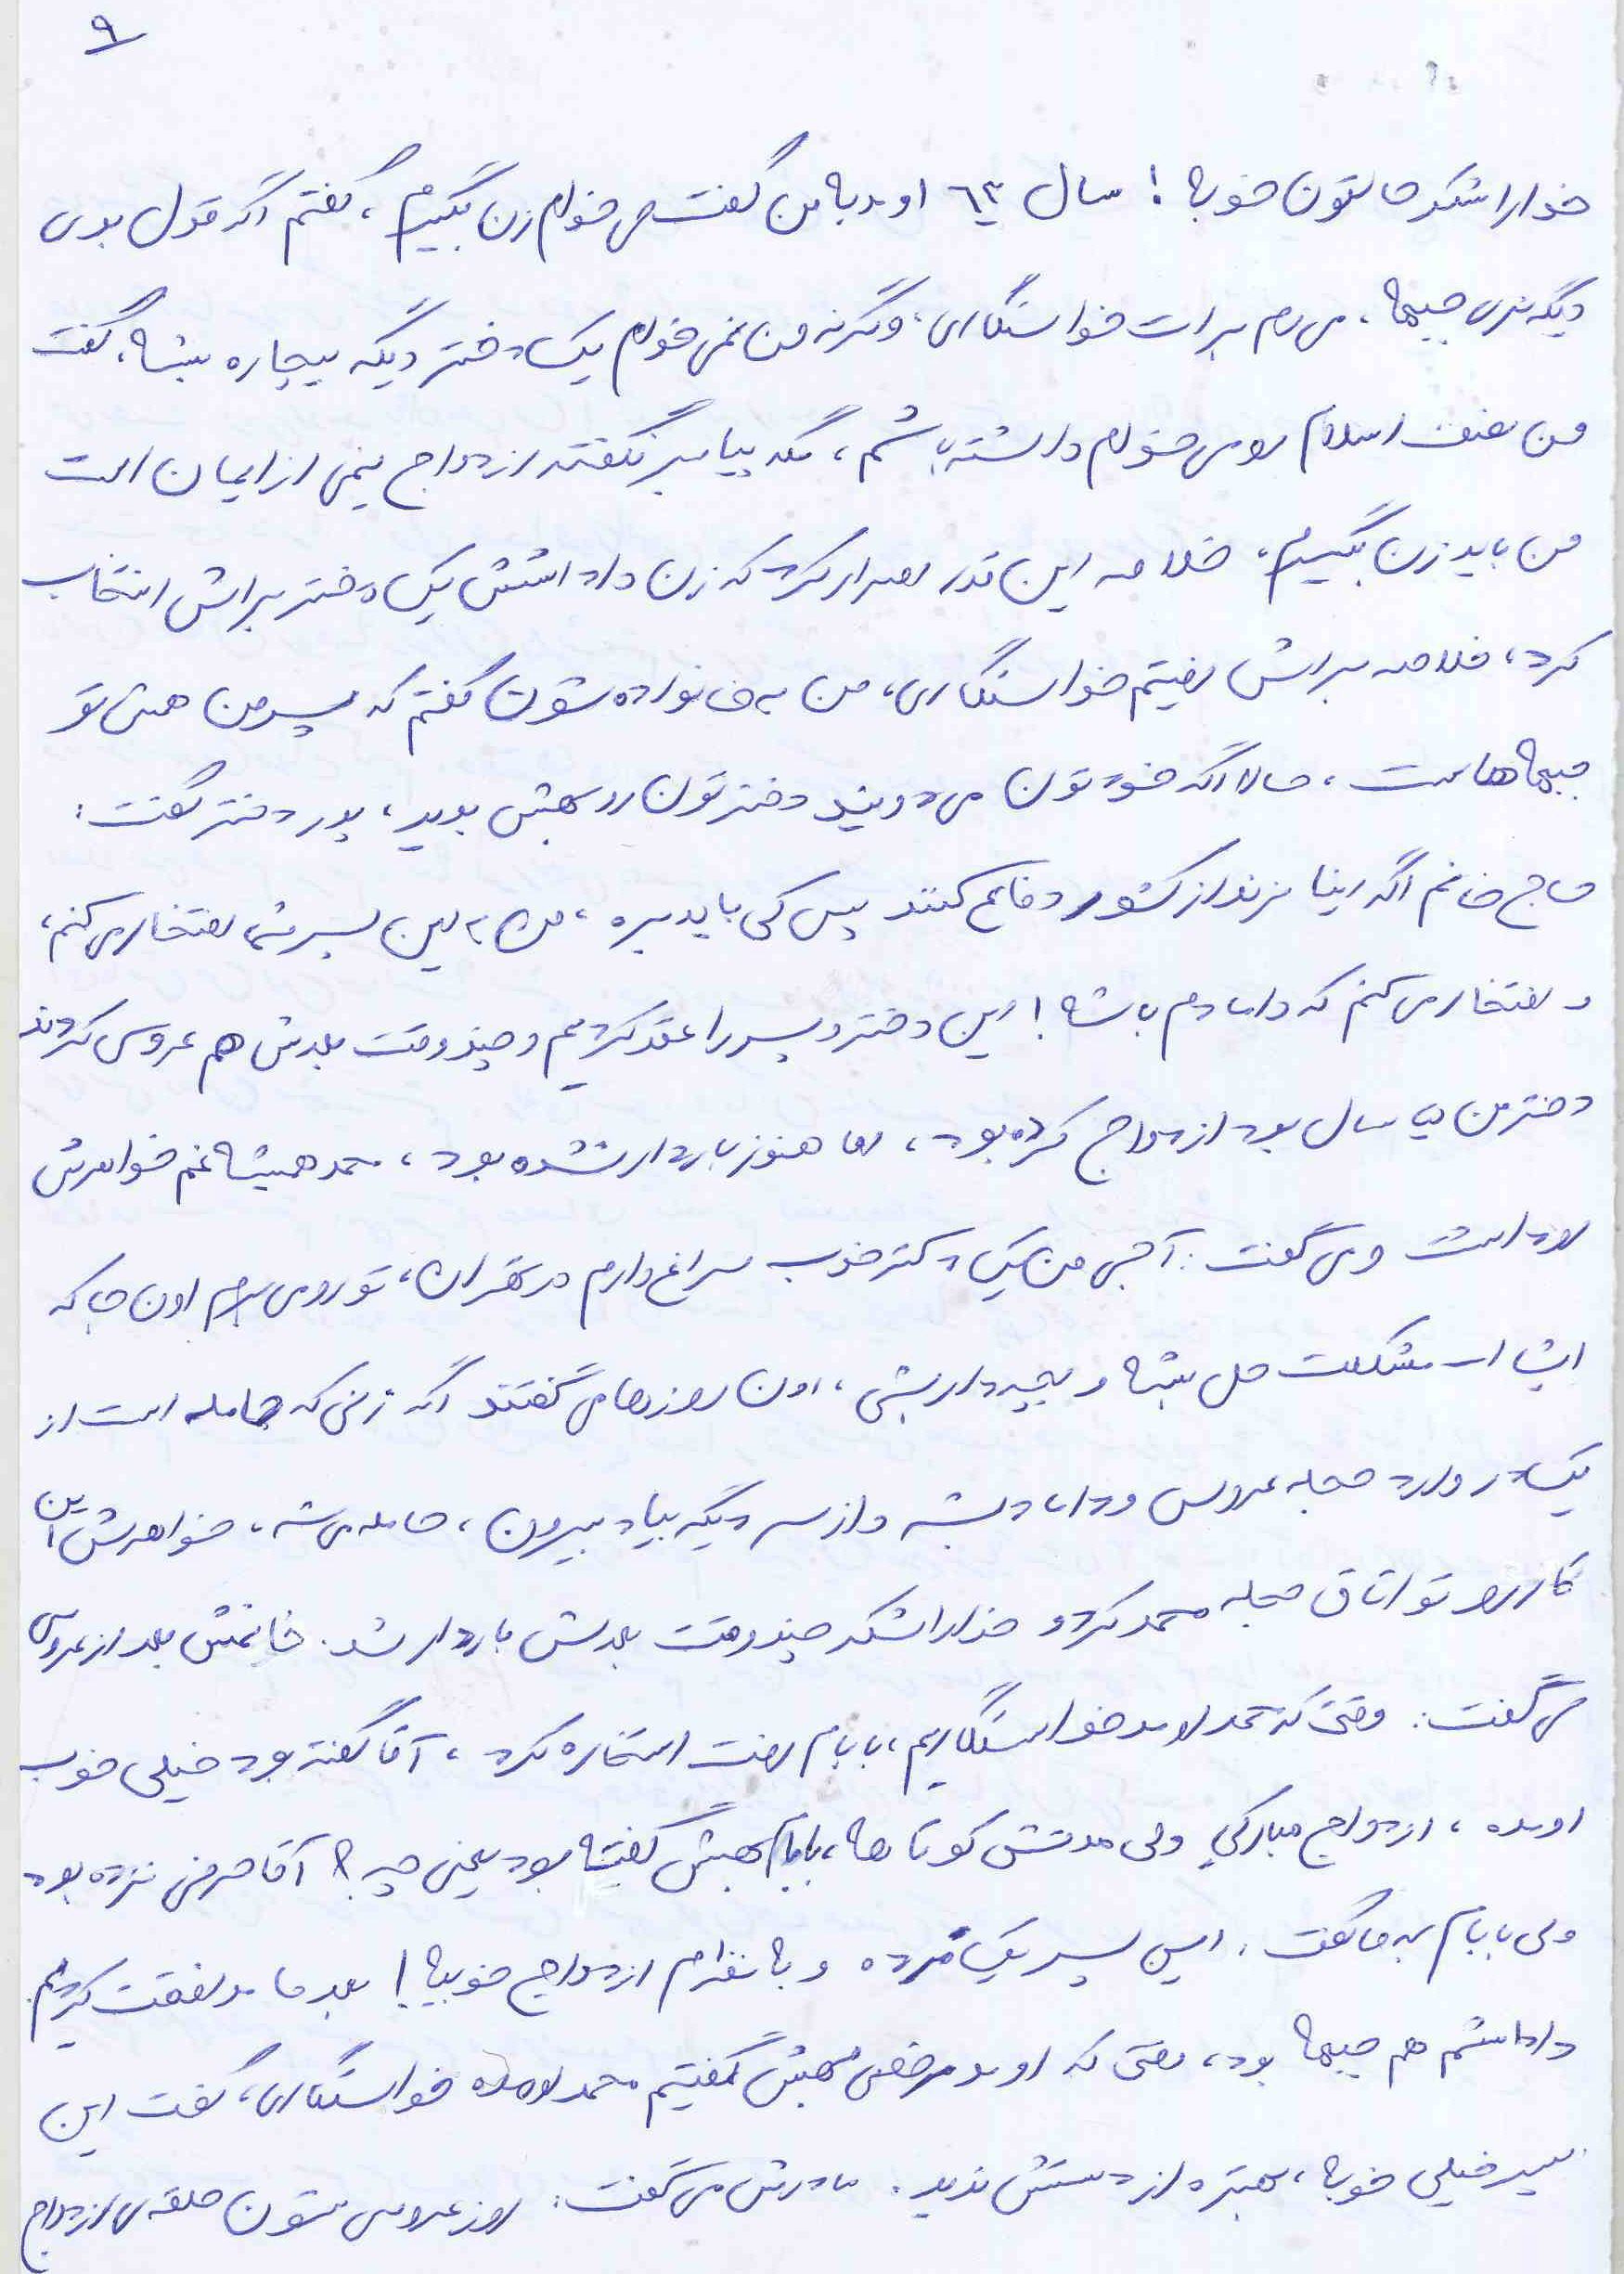 ۹
خدا را شکر حالتون خوبه! سال ۶۳ اومد به من گفت می خوام زن بگیرم، گفتم اگه قول بدی
دیگه نری جبهه، می رم برات خواستگاری، وگرنه من نمی خوام یک دختر دیگه بیچاره بشه، گفت
من ضعف اسلام رو می خوام داشته باشم، مگه پیامبر نگفته ازدواج نیمی از ایمان است
من باید زن بگیرم، خلاصه این قدر اصرار کرد که زن داداشش یک دختر براش انتخاب
کرد، خلاصه براش رفتیم خواستگاری، من به خانواده شون گفتم که پسر من همش تو
جبهه هاست، حالا اگه خودتون می دونید دخترتون رو بهش بدید، پدر دختر گفت:
حاج خانم اگه اینا نرند از کشور دفاع کنند پس کی باید بره، من به این پسر شما افتخار می کنم،
و افتخار می کنم که دامادم باشه! این دختر و پسر را عقد کردیم و چند وقت بعدش هم عروسی کردند
دختر من سال بود ازدواج کرده بود، اما هنوز باردار نشده بود، محمد همیشه غم خواهرش
رو داشت و می گفت: آجی من یک دکتر خوب سراغ دارم در تهران، تو رو می برم اون جا که
ان شا ا... مشکلت حل بشه و بچه دار بشی، اون روزها می گفتند اگه زنی که حامله است از
یک در وارد حجله عروس و داماد بشه و از در دیگه بیاد بیرون، حامله می شه، خواهرش این
کار رو تو اتاق حجله محمد کرد و خدا را شکر چند وقت بعدش باردار شد. خانمش بعد از عروسی
می گفت: وقتی که محمد اومد خواستگاریم، بابام رفت استخاره کرد، آقا گفته بود خیلی خوب
اومده، ازدواج مبارکیِ ولی مدتش کوتاهه، بابام بهش گفته بود یعنی چه؟ آقا حرفی نزده بود
ولی بابام به ما گفت: این پسر یک مرده و به نظرم ازدواج خوبیه! بعد ما موافقت کردیم.
داداشم هم جبهه بود، وقتی که اومد مرخصی بهش گفتیم محمد اومده خواستگاری، گفت این
پسر خیلی خوبه، بهتره از دستش ندید. مادرش می گفت: روز عروسی شون حلقه ی ازدواج